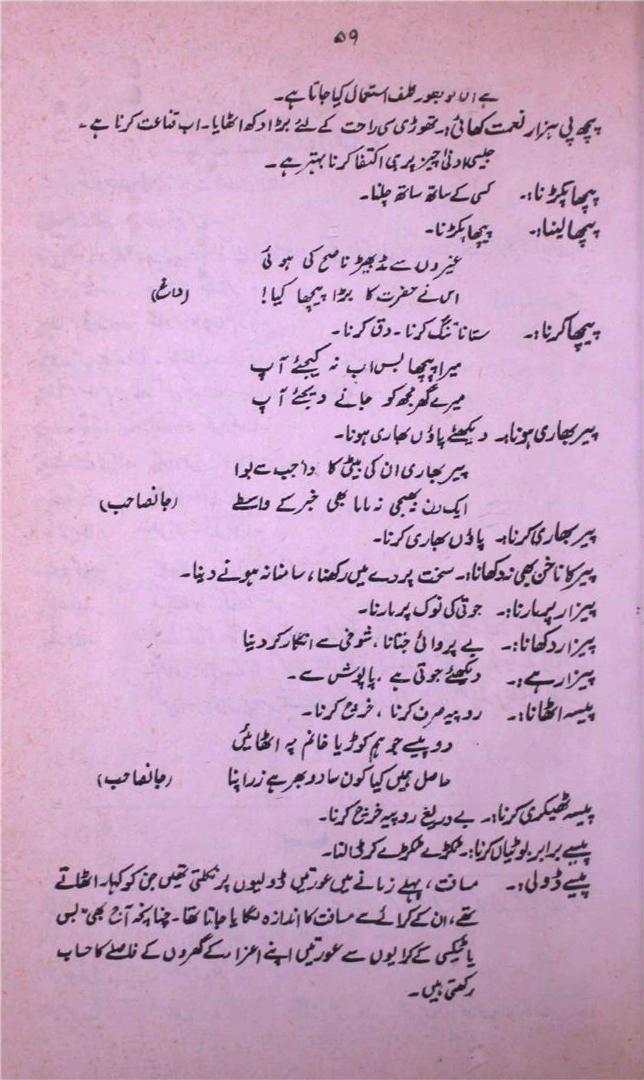 ۵۹
ہے اس کو بطور تکلف استعمال کیا جاتا ہے۔
پیچھ پی ہزار نعمت کھائی:۔ تھوڑی سی راحت کے لئے بڑا دکھ اٹھایا۔ اب قناعت کرنا ہے۔
جیسی ادنیٰ چیز پر ہی اکتفا کرنا بہتر ہے۔
پیچھا پکڑنا:۔ کسی کے ساتھ ساتھ چلنا۔
پیچھا لینا:۔ پیچھا پکڑنا۔
غیروں سے مڈبھیڑ ناصح کی ہوئی
اس نے حضرت کا بڑا پیچھا کیا! (داغ)
پیچھا کرنا:۔ ستانا تنگ کرنا۔ دق کرنا۔
میرا پیچھا بس اب نہ کیجئے آپ
میرے گھر مجھ کو جانے دیجئے آپ
پیر بھاری ہونا:۔ دیکھئے پاؤں بھاری ہونا۔
پیر بھاری ان کی بیٹی کا واجب سے ہوا
ایک دن بھیجی نہ ماما بھی خبر کے واسطے (جانصاحب)
پیر بھاری کرنا:۔ پاؤں بھاری کرنا۔
پیر کا ناخن بھی نہ دکھانا:۔ سخت پردے میں رکھنا، سامنا نہ ہونے دینا۔
پیزار پر مارنا:۔ جوتی کی نوک پر مارنا۔
پیزار دکھانا:۔ بے پروائی جتانا، شوخی سے انکار کر دینا
پیزار سے:۔ دیکھئے جوتی سے، پاپوش سے۔
پیسہ اٹھانا:۔ روپیہ صرف کرنا، خرچ کرنا۔
دو پیسے جو ہم کوڑیا خانم پہ اٹھائیں
حاصل ہمیں کیا کون سا دوبھر ہے زر اپنا (جانصاحب)
پیسہ ٹھیکری کرنا:۔ بے دریغ روپیہ خرچ کرنا۔
پیسے برابر بوٹیاں کرنا:۔ ٹکڑے ٹکڑے کر ڈالنا۔
پیسے ڈولی:۔ مسافت، پہلے زمانے میں عورتیں ڈولیوں پر نکلتی تھیں جن کو کہار اٹھاتے
تھے، ان کے کرائے سے مسافت کا اندازہ لگایا جاتا تھا۔ چنانچہ آج بھی بس
یا ٹیکسی کے کرایوں سے عورتیں اپنے اعزاء کے گھروں کے فاصلے کا حساب
رکھتی ہیں۔